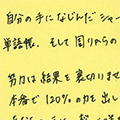 自分の手になじんだシャー
単語帳、そして周りからの
努力は結果を裏切りませ
本番で120%の力を出し